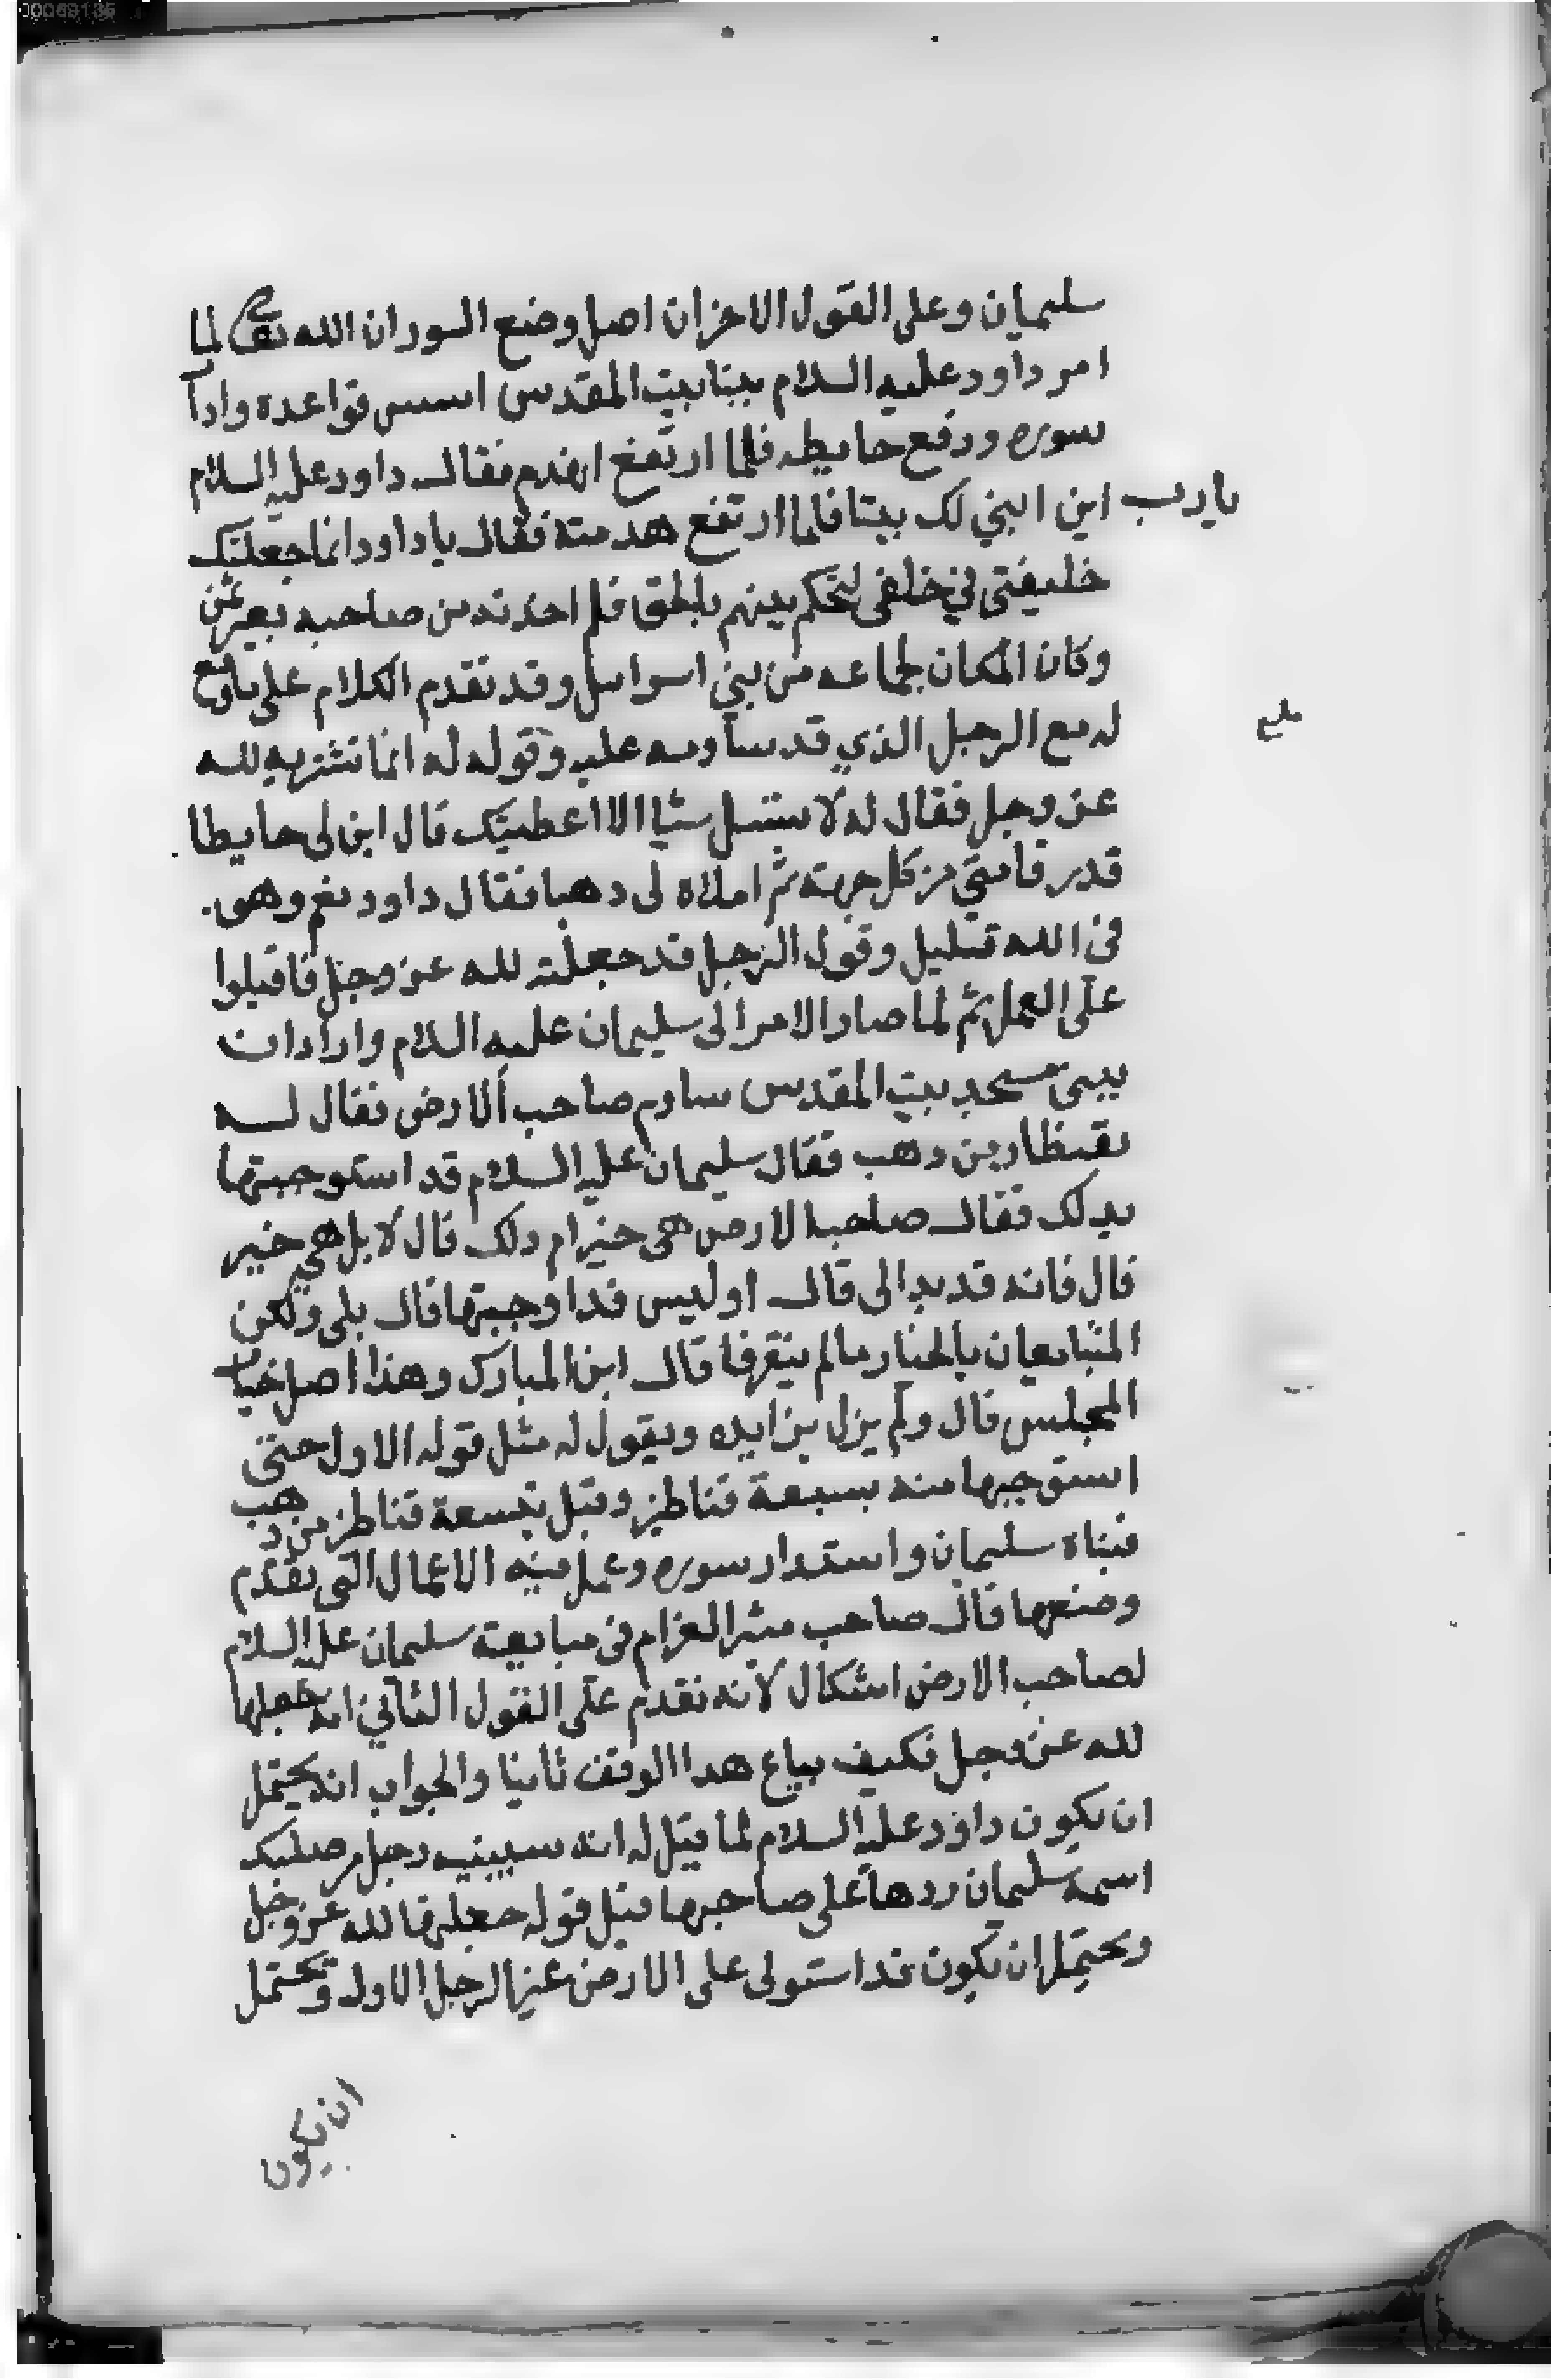 سليمان وعلى القول الاخران اصل وضع السور ان الله تعالى لما
امر داود عليه السلام ببنا بيت المقدس اسس قواعده وادا
سوره ورفع حايطه فلما ارتفع انهدم فقال داود عليه السلام
يارب اين ابني لك بيتا فلما ارتفع هدمته فقال ياداود انما جعلتك
خليفتي في خلقي لتحكم بينهم بالحق فلم اخذته من صاحبه بغير ثمن
وكان المكان لجماعه من بني اسراىيل وقد تقدم الكلام على ماوقع
له مع الرجل الذي قد ساومه عليه وقوله له انما تشتريه لله
عز وجل فقال له لا تسئل شيا الا اعطيتك قال ابن لى حايطا
قدر قامتي من كل جهة ثم املاه لى دهبا فقال داود نعم وهو
في الله قليل وقول الرجل قد جعلته لله عز وجل فاقبلوا
على العمل ثم لما صار الامر الى سليمان عليه السلام واراد ان
يبنى مسجد بيت المقدس ساوم صاحب الارض فقال له
بقنطار من دهب فقال سليمان عليه السلام قد استوجبتها
بدلك فقال صاحب الارض هى خير ام دلك قال لا بل هي خير
قال فانه قد بدا لى قال اوليس قد اوجبتها قال بلى ولكن
المتبايعان بالخيار مالم يتفرقا قال ابن المبارك وهذا اصل خيار
المجلس قال ولم يزل يزايده ويقول له مثل قوله الاول حتى
استوجبها منه بسبعة قناطير وقيل بتسعة قناطير من دهب
فبناه سليمان واستدار سوره وعمل فيه الاعمال التى تقدم
وصفها قال صاحب مثير الغرام فى مبايعة سليمان عليه السلام
لصاحب الارض اشكال لانه تقدم على القول الثاني انه جعلها
لله عز وجل فكيف يباع هدا الوقف ثانيا والجواب انه يحتمل
ان يكون داود عليه السلام لما قيل له انه سيبنيه رجل من صلبك
اسمه سليمان ردها على صاحبها قبل قوله جعلتها لله عز وجل
ويحتمل ان يكون قد استولى على الارض غير الرجل الاول ويحتمل
ان يكون